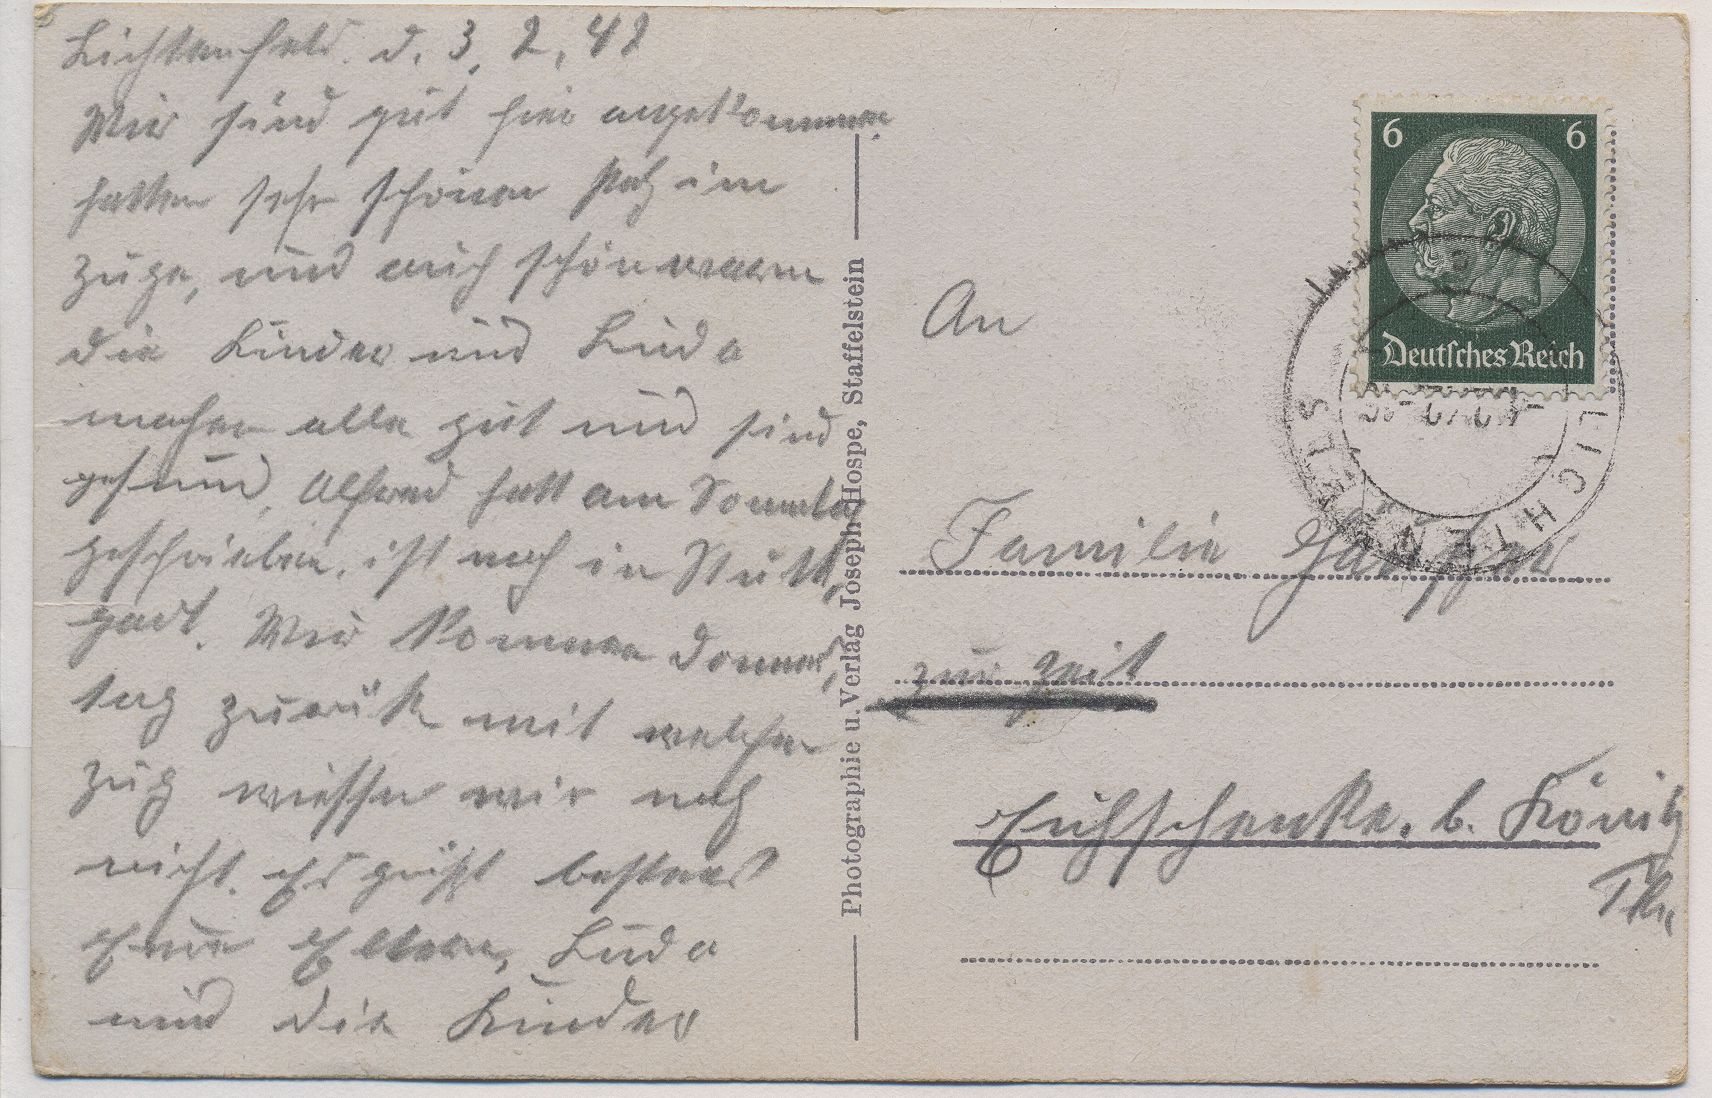 Lichtenfels. d. 3. 2. 42
Wir sind gut hier angekommen
hatten sehr schönen Platz im
Zuge, und auch schön warm
die Kinder und Linda
machen alle gut und sind
gesund, Alfred hatt am Sonntag
geschrieben, ist noch in Stutt,
gart. Wir kommen Donners,
tag zurück mit welchen
Zug wissen wir noch
nicht. Es grüsst bestens
Eure Eltern, Linda
und die Kinder
Photographie u. Verlag Joseph Hospe, Staffelstein
6 6
Deutsches Reich
LICHTENFELS
An
Familie
zur Zeit
Eichschenke. b. Könitz
Thü